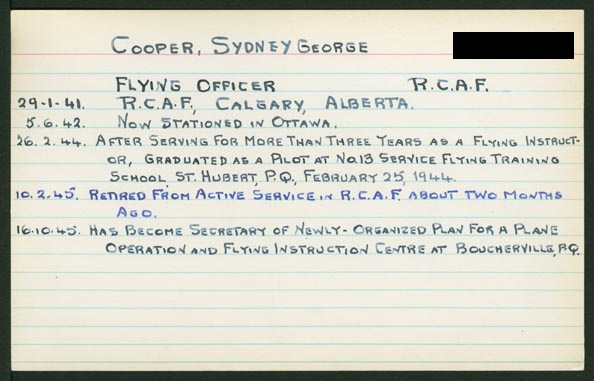 COOPER, SYDNEY GEORGE
FLYING OFFICER R.C.A.F.
29-1-41. R.C.A.F., CALGARY, ALBERTA.
5.6.42. NOW STATIONED IN OTTAWA.
26.2.44. AFTER SERVING FOR MORE THAN THREE YEARS AS A FLYING INSTRUCT-
OR, GRADUATED AS A PILOT AT NO.13 SERVICE FLYING TRAINING
SCHOOL, ST. HUBERT, P.Q., FEBRUARY 25, 1944.
10.2.45. RETIRED FROM ACTIVE SERVICE IN R.C.A.F. ABOUT TWO MONTHS
AGO.
16.10.45. HAS BECOME SECRETARY OF NEWLY-ORGANIZED PLAN FOR A PLANE
OPERATION AND FLYING INSTRUCTION CENTRE AT BOUCHERVILLE, P.Q.